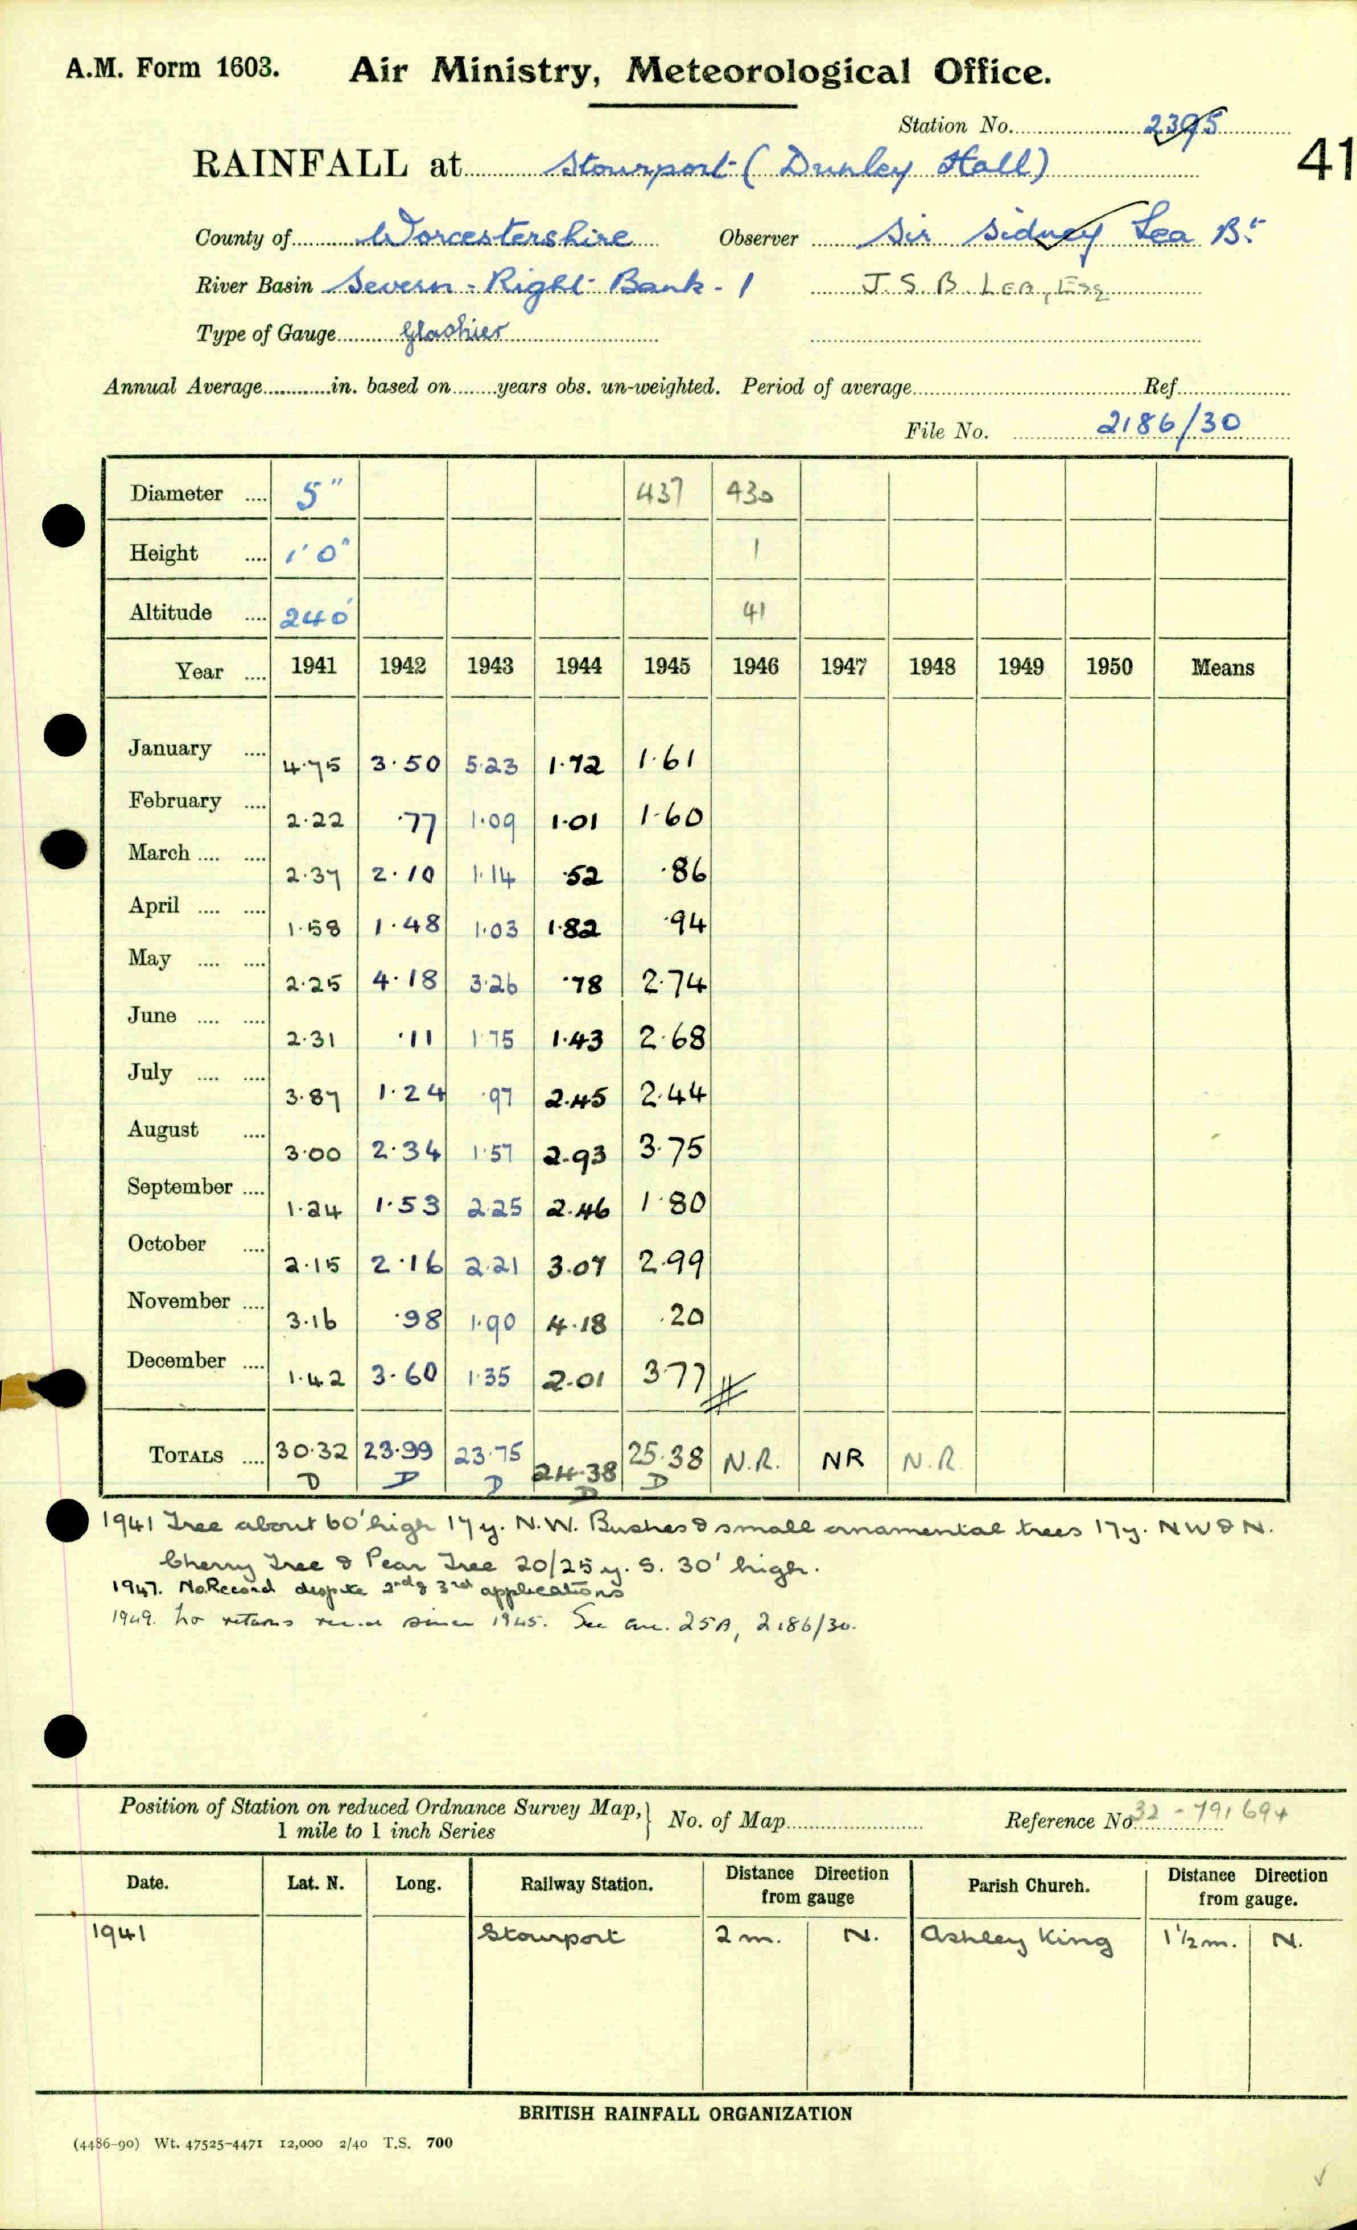 A.M. Form 1603. Air Ministry, Meteorological Office.
Station No. 2395
41
RAINFALL at Stourport (Dunley Hall)
County of Worcestershire Observer Sir Sidney Lea Bt
River Basin Severn - Right Bank - 1 J. S. B. Lea, Esq
Type of Gauge Glashier
Annual Average in. based on years obs. un-weighted. Period of average Ref
File No. 2186/30
Diameter .... 5" 437 430
Height .... 1'0" 1
Altitude .... 240' 41
Year .... 1941 1942 1943 1944 1945 1946 1947 1948 1949 1950 Means
January .... 4.75 3.50 5.23 1.72 1.61
February .... 2.22 .77 1.09 1.01 1.60
March .... .... 2.37 2.10 1.14 .52 .86
April .... .... 1.58 1.48 1.03 1.82 .94
May .... .... 2.25 4.18 3.26 .78 2.74
June .... .... 2.31 .11 1.75 1.43 2.68
July .... .... 3.87 1.24 .97 2.45 2.44
August .... 3.00 2.34 1.57 2.93 3.75
September .... 1.24 1.53 2.25 2.46 1.80
October .... 2.15 2.16 2.21 3.07 2.99
November .... 3.16 .98 1.90 4.18 .20
December .... 1.42 3.60 1.35 2.01 3.77
TOTALS .... 30.32 23.99 23.75 24.38 25.38 N.R. NR N.R.
D D D D D
1941 Tree about 60' high 17y. N.W. Bushes & small ornamental trees 17y. NW & N.
Cherry Tree & Pear Tree 20/25y. S. 30' high.
1947. No Record despite 2nd & 3rd applications
1949. No returns since 1945. See 25A, 2186/30.
Position of Station on reduced Ordnance Survey Map, } No. of Map Reference No 32 - 791694
1 mile to 1 inch Series
Date. Lat. N. Long. Railway Station. Distance Direction from gauge Parish Church. Distance Direction from gauge.
1941 Stourport 2 m. N. Astley King 1½ m. N.
BRITISH RAINFALL ORGANIZATION
(4486-90) Wt. 47525-4471 12,000 2/40 T.S. 700